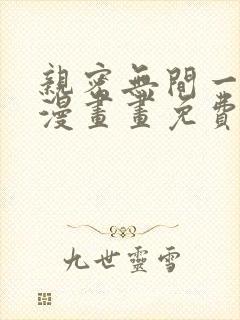 親密無間一
漫畫畫免費
九世靈雪